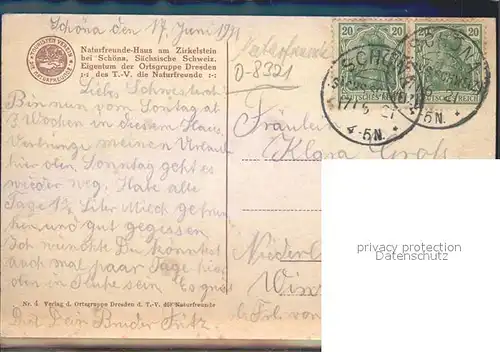 Schöna den 17. Juni 1921
Naturfreunde-Haus am Zirkelstein
bei Schöna, Sächsische Schweiz.
Eigentum der Ortsgruppe Dresden
des T.-V. die Naturfreunde
TOURISTEN VEREIN
DIE NATURFREUNDE
0-8321
20 20
20 20
DEUTSCHES REICH
DEUTSCHES REICH
SCHÖNA
4-5N.
Liebe Schwester!
Bin nun vom Sonntag ab
3 Wochen in diesem Haus.
Verbringe meinen Urlaub
hier oben. Sonntag geht es
wieder weg. Habe alle
Tage 1½ Liter Milch getrun-
ken und gut gegessen
Ich wünschte Du könntest
auch mal paar Tage hier
oben in Ruhe sein. Es grüßt
Nr. 4 Verlag d. Ortsgruppe Dresden d. T.-V. die Naturfreunde
Dich Dein Bruder Fritz.
Fräulein
Klara
privacy protection
Datenschutz